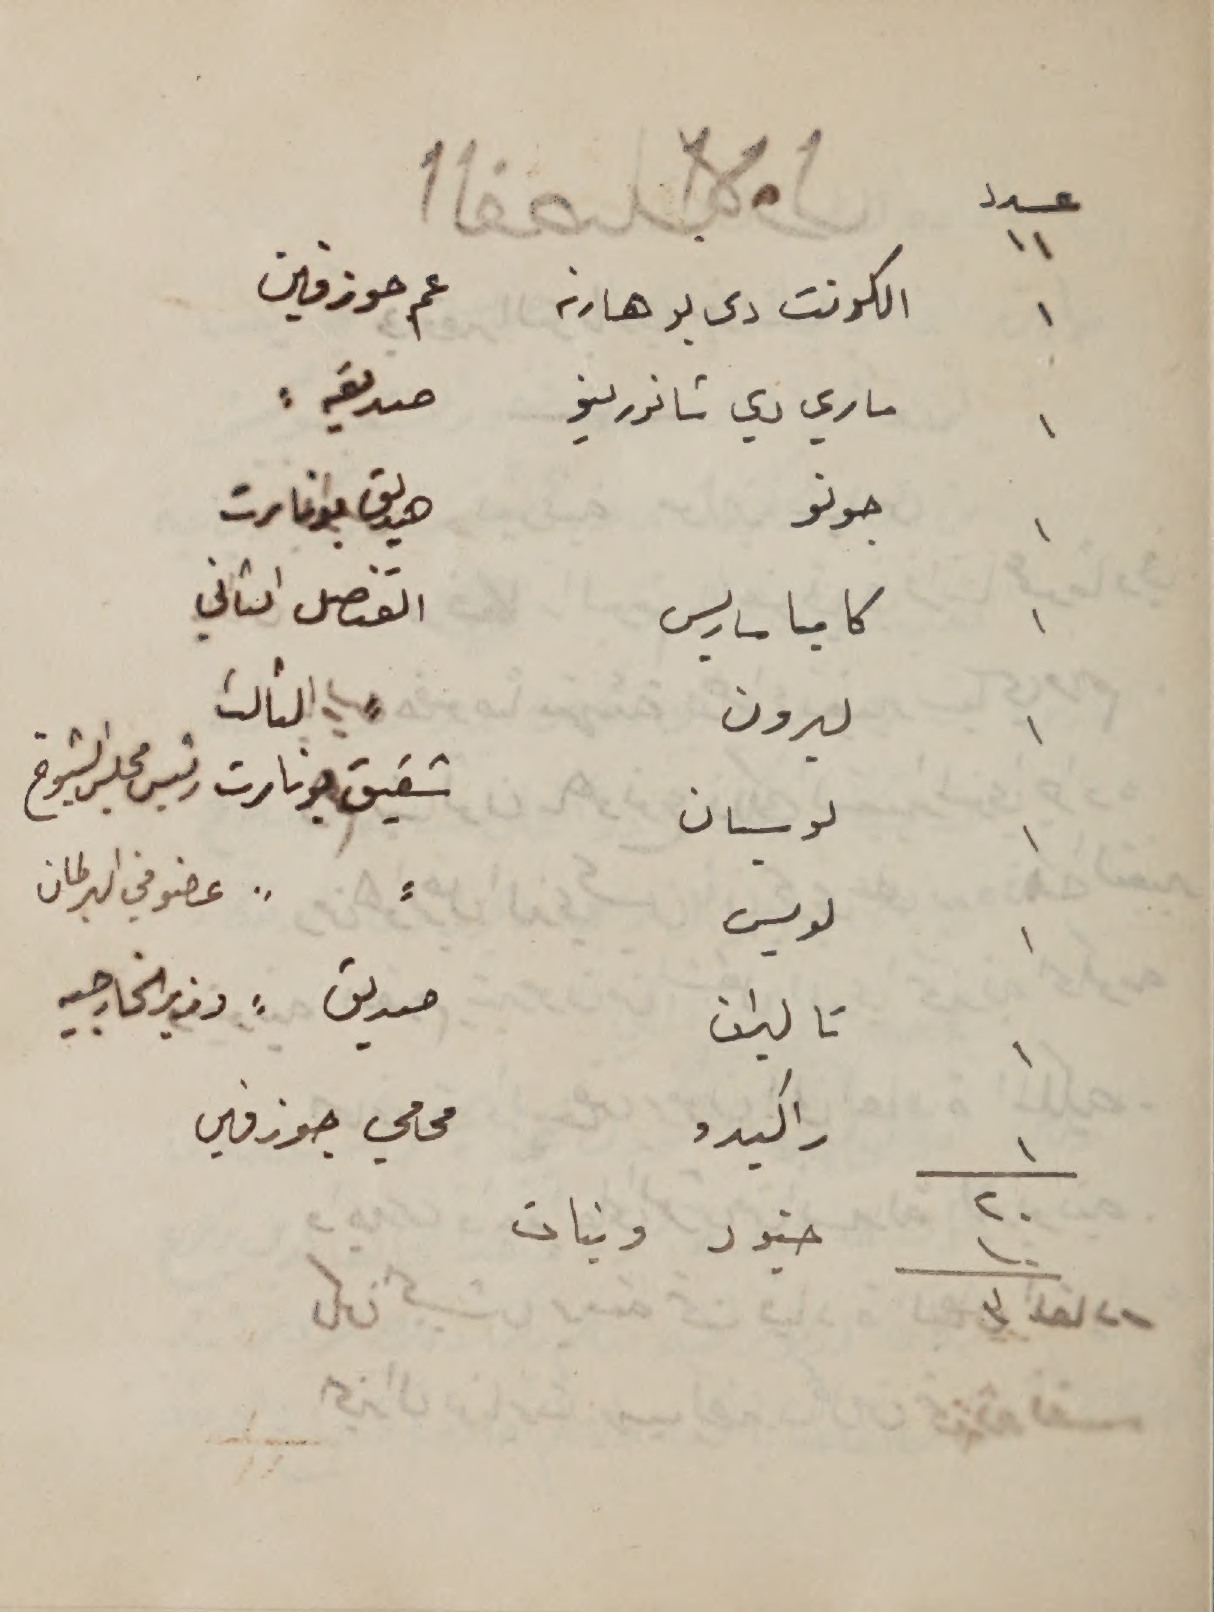 عدد
١١
١ الكونت دى بو هارنه عم جوزفين
١ ماري دي شانورينو صديقة "
١ جونو صديق بونابرت
١ كامباسارس القنصل الثاني
١ لبرون " الثالث
١ لوسيان شقيق بونابرت رئيس مجلس الشيوخ
١ لويس " " عضو في البرلمان
١ تاليران صديق " وزير الخارجيه
١ راكيدو محامي جوزفين
٢٠
جنود وبنات ١٠